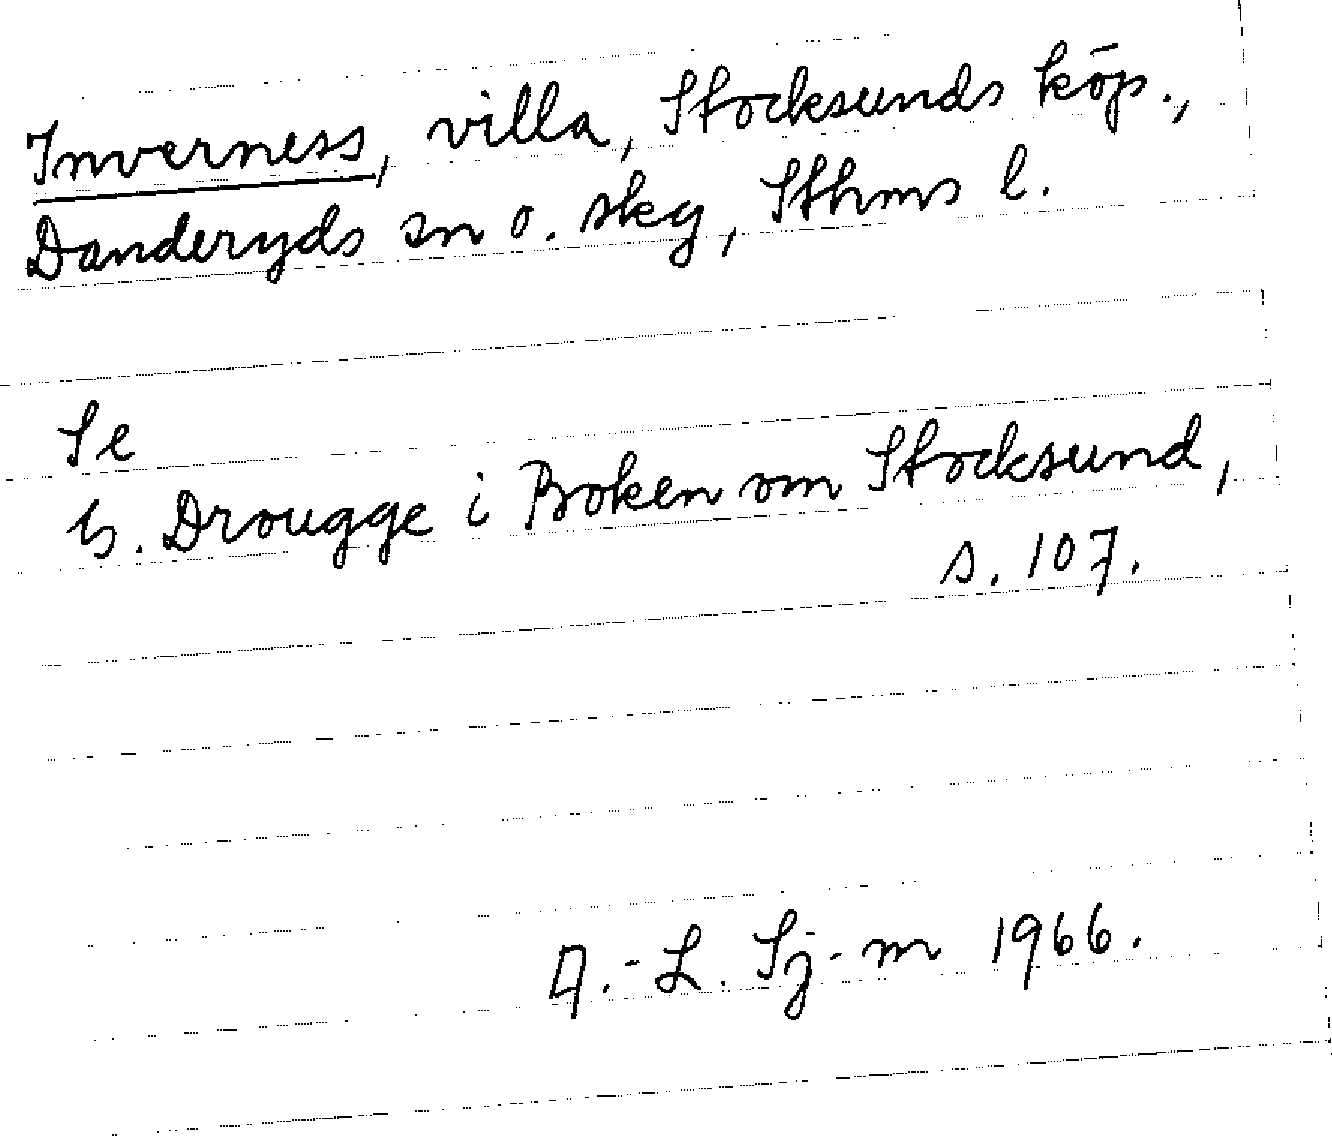 Inverness, villa, Stocksunds köp.,
Danderyds sn o. skg, Sthms l.
Se
G. Drougge i Boken om Stocksund,
s. 107.
A.-L. Sj-m 1966.